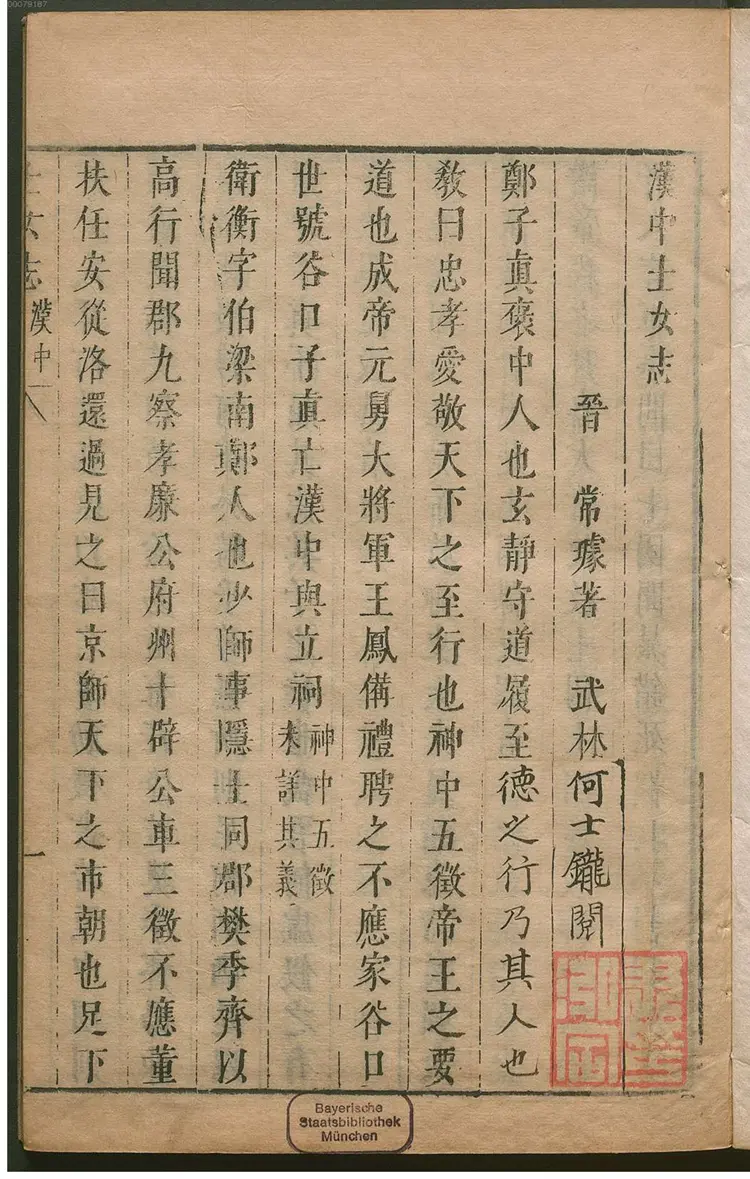 00079187
漢中士女志
晉 常璩著 武林何士鑨閱
鄭子真褒中人也玄靜守道履至德之行乃其人也
敎曰忠孝愛敬天下之至行也神中五徵帝王之要
道也成帝元舅大將軍王鳳備禮聘之不應家谷口
世號谷口子真亡漢中與立祠神中五徵未詳其義
衛衡字伯梁南鄭人也少師事隱士同郡樊季齊以
高行聞郡九察孝廉公府州十辟公車三徵不應董
扶任安從洛還過見之曰京師天下之市朝也足下
士女志 漢中 一
Bayerische
Staatsbibliothek
München